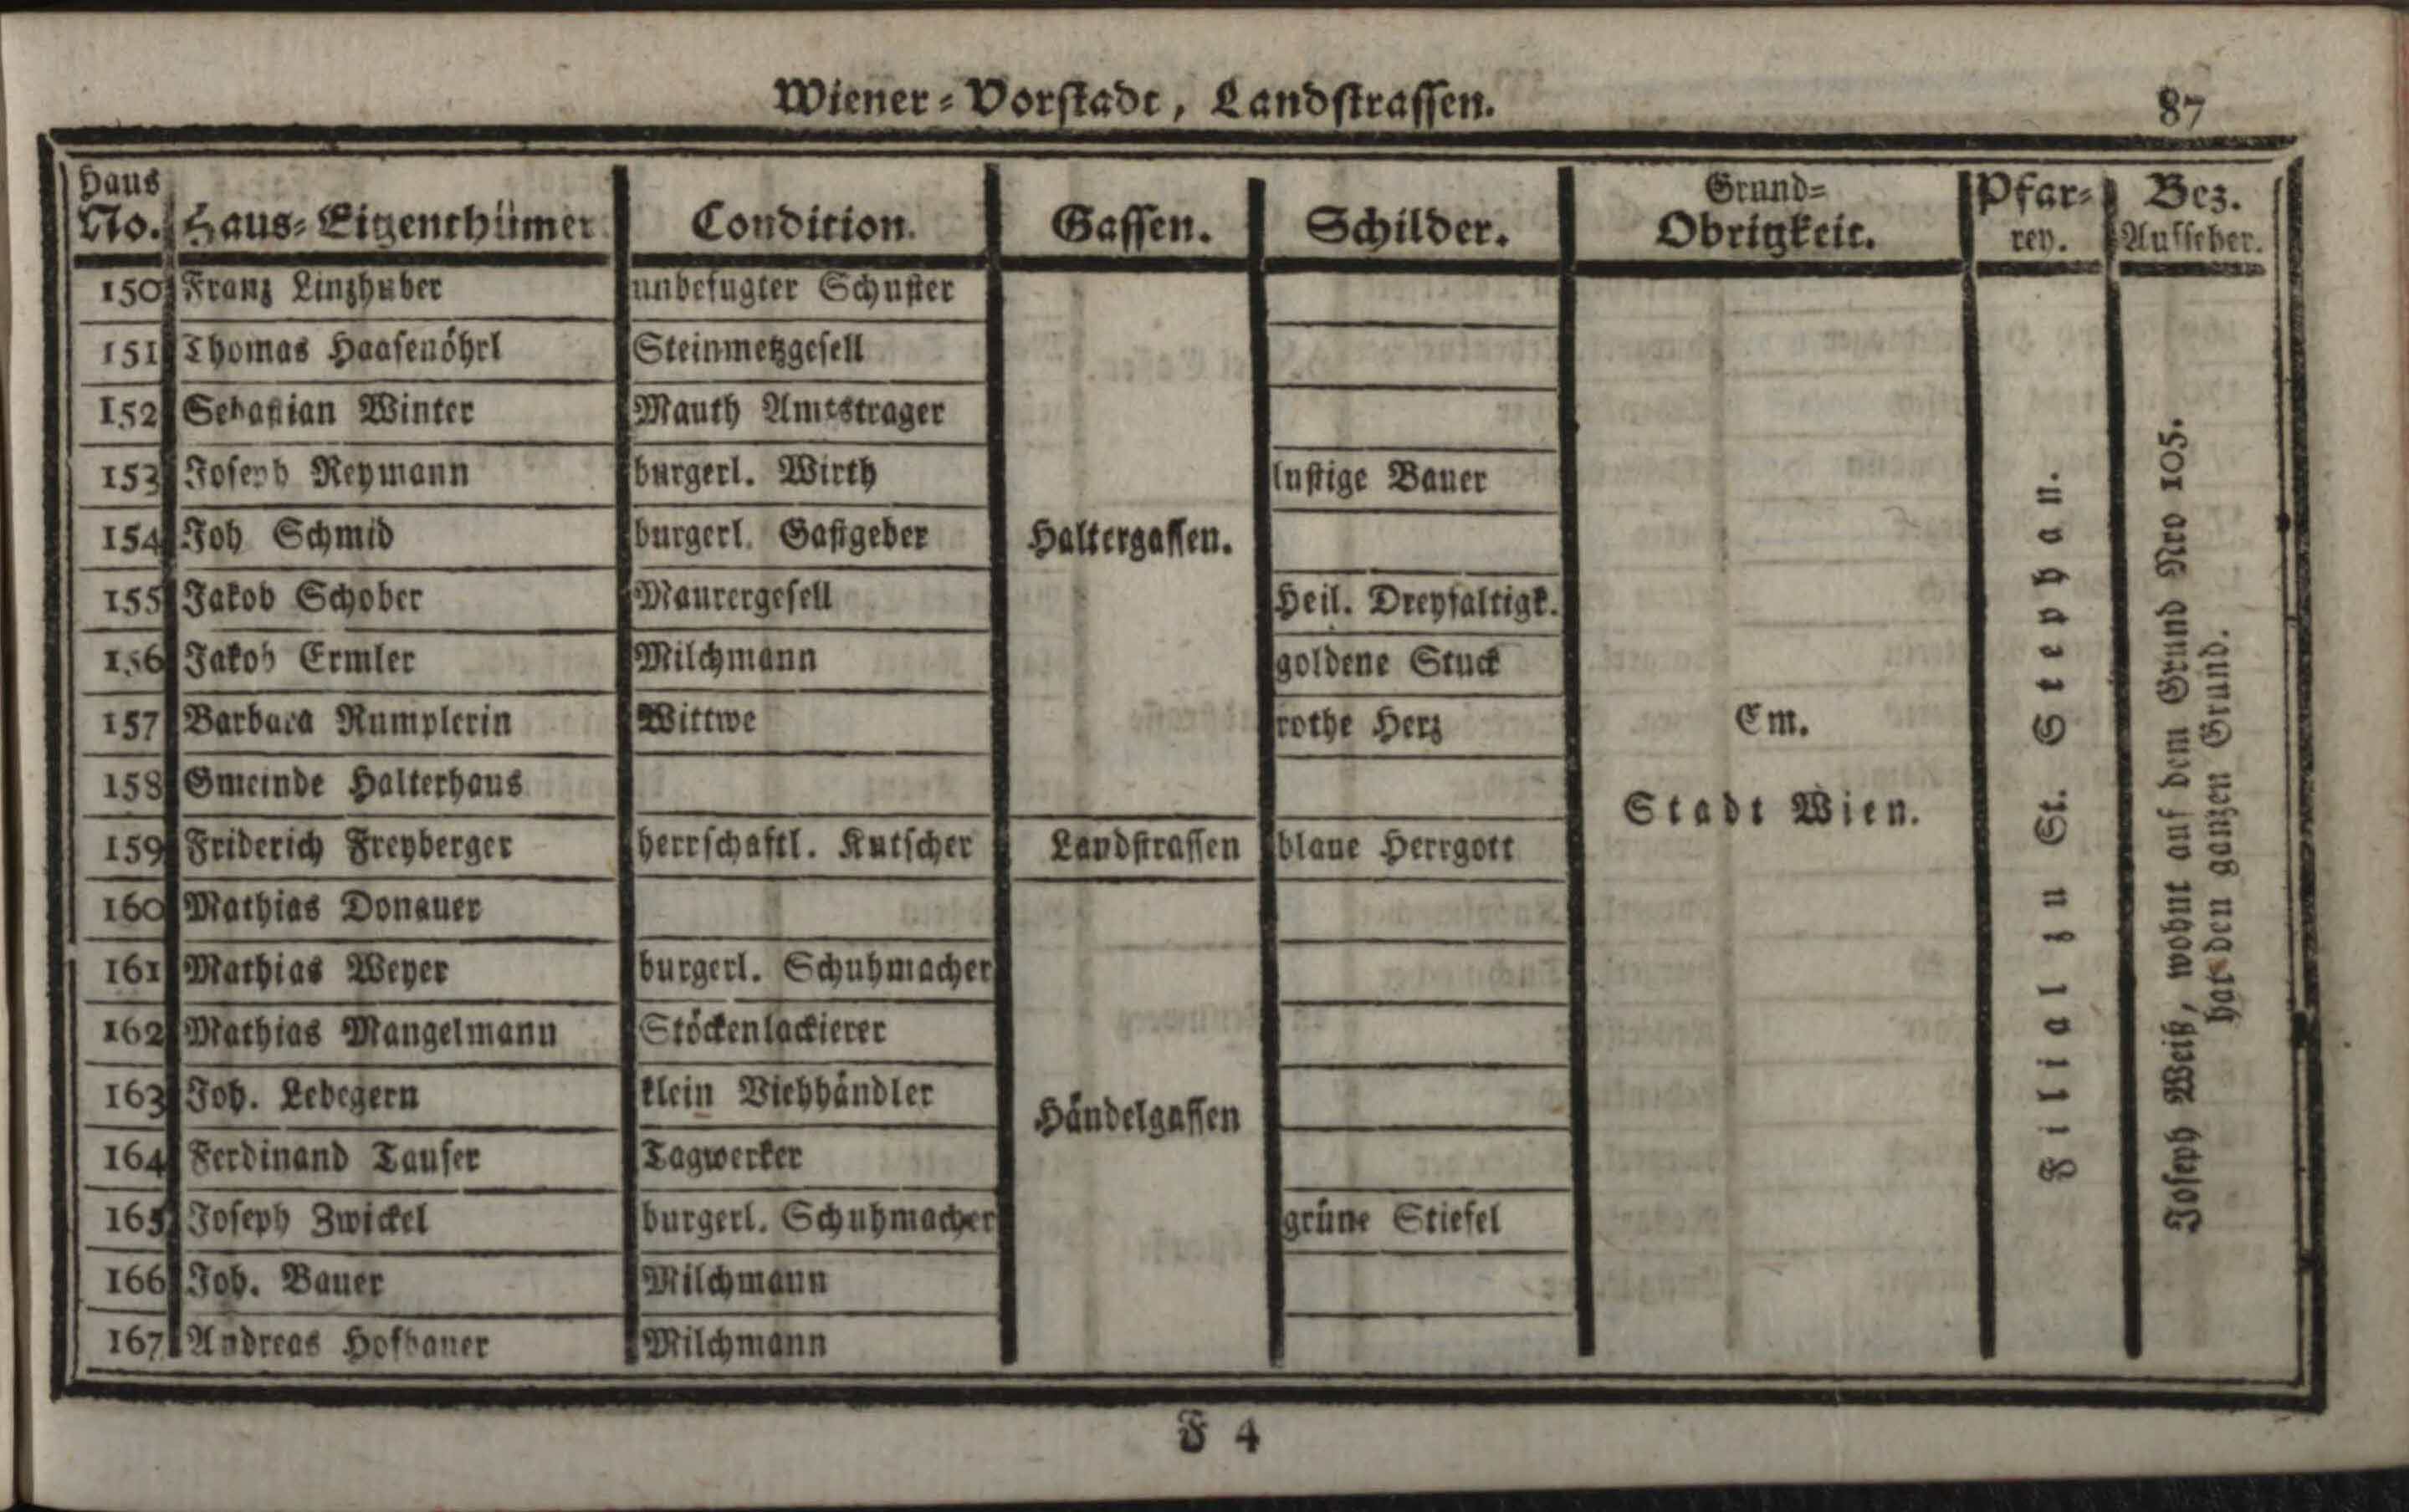 Wiener-Vorstadt, Landstrassen. 87
Haus No. Haus-Eigenthümer Condition. Gassen. Schilder. Grund-Obrigkeit. Pfar-rey. Bez. Aufseher.
150 Franz Linzhuber unbefugter Schuster
151 Thomas Haasenöhrl Steinmetzgesell
152 Sebastian Winter Mauth Amtstrager
153 Joseph Reymann burgerl. Wirth lustige Bauer
154 Joh Schmid burgerl. Gastgeber Haltergassen.
155 Jakob Schober Maurergesell Heil. Dreyfaltigk.
156 Jakob Ermler Milchmann goldene Stuck
157 Barbara Rumplerin Wittwe rothe Herz Em.
158 Gmeinde Halterhaus
Stadt Wien.
159 Friderich Freyberger herrschaftl. Kutscher Landstrassen blaue Herrgott
160 Mathias Donauer
161 Mathias Weyer burgerl. Schuhmacher
162 Mathias Mangelmann Stöckenlackierer
163 Joh. Lebegern klein Viehhändler Händelgassen
164 Ferdinand Taufer Tagwerker
165 Joseph Zwickel burgerl. Schuhmacher grüne Stiefel
166 Joh. Bauer Milchmann
167 Andreas Hofbauer Milchmann
Filial zu St. Stephan.
Joseph Weiß, wohnt auf dem Grund Nro 105.
hat den ganzen Grund.
F 4